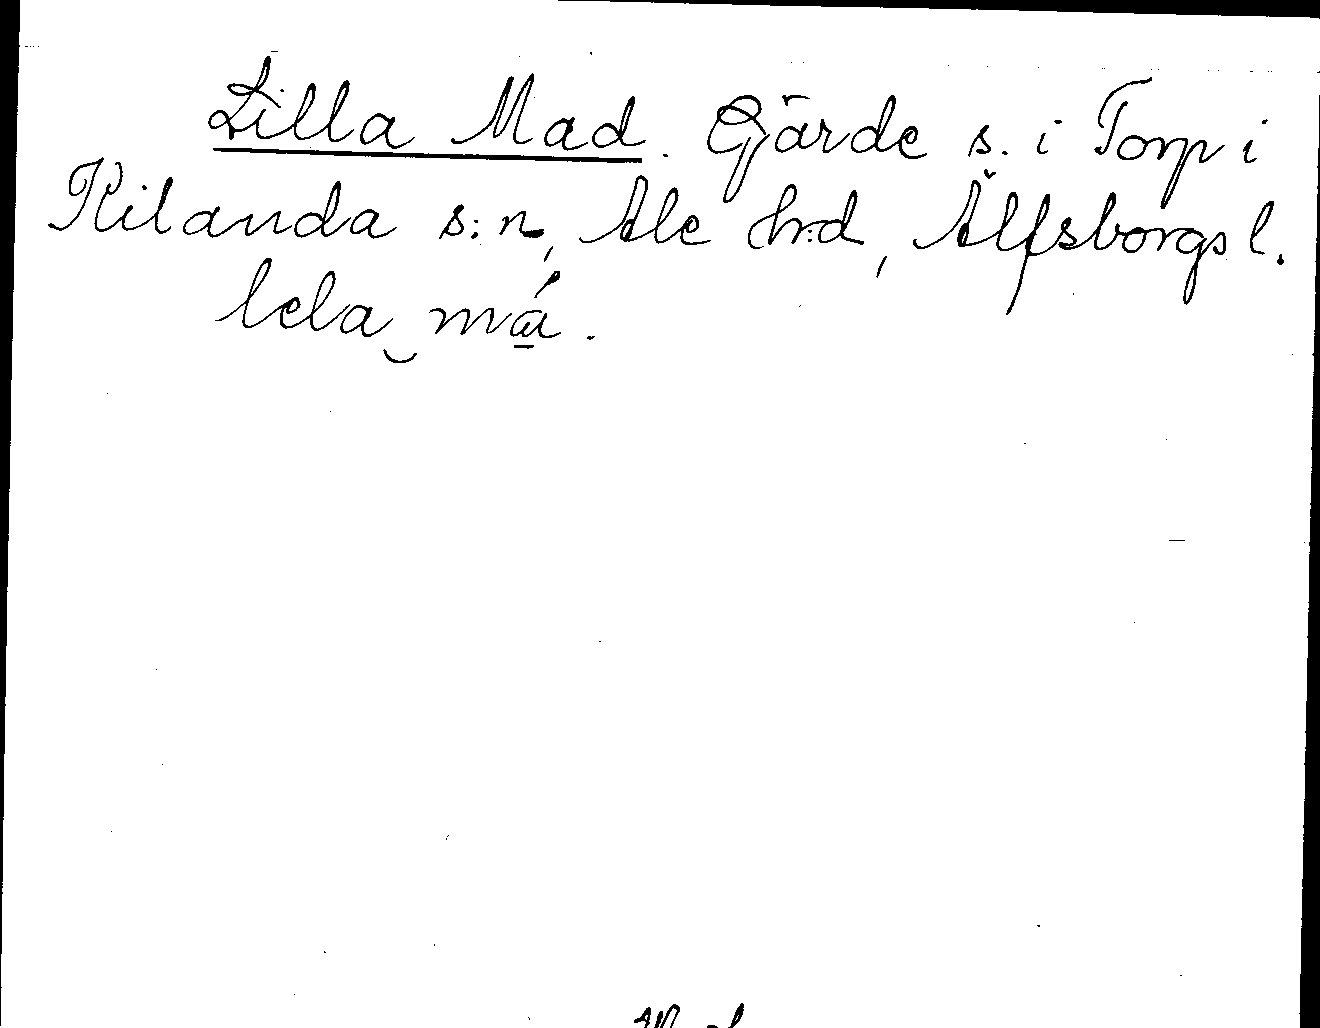 Lilla Mad. Gjärde s. i Torp i
Kilanda s:n, Ale h:d, Älfsborgs l.
lela má.